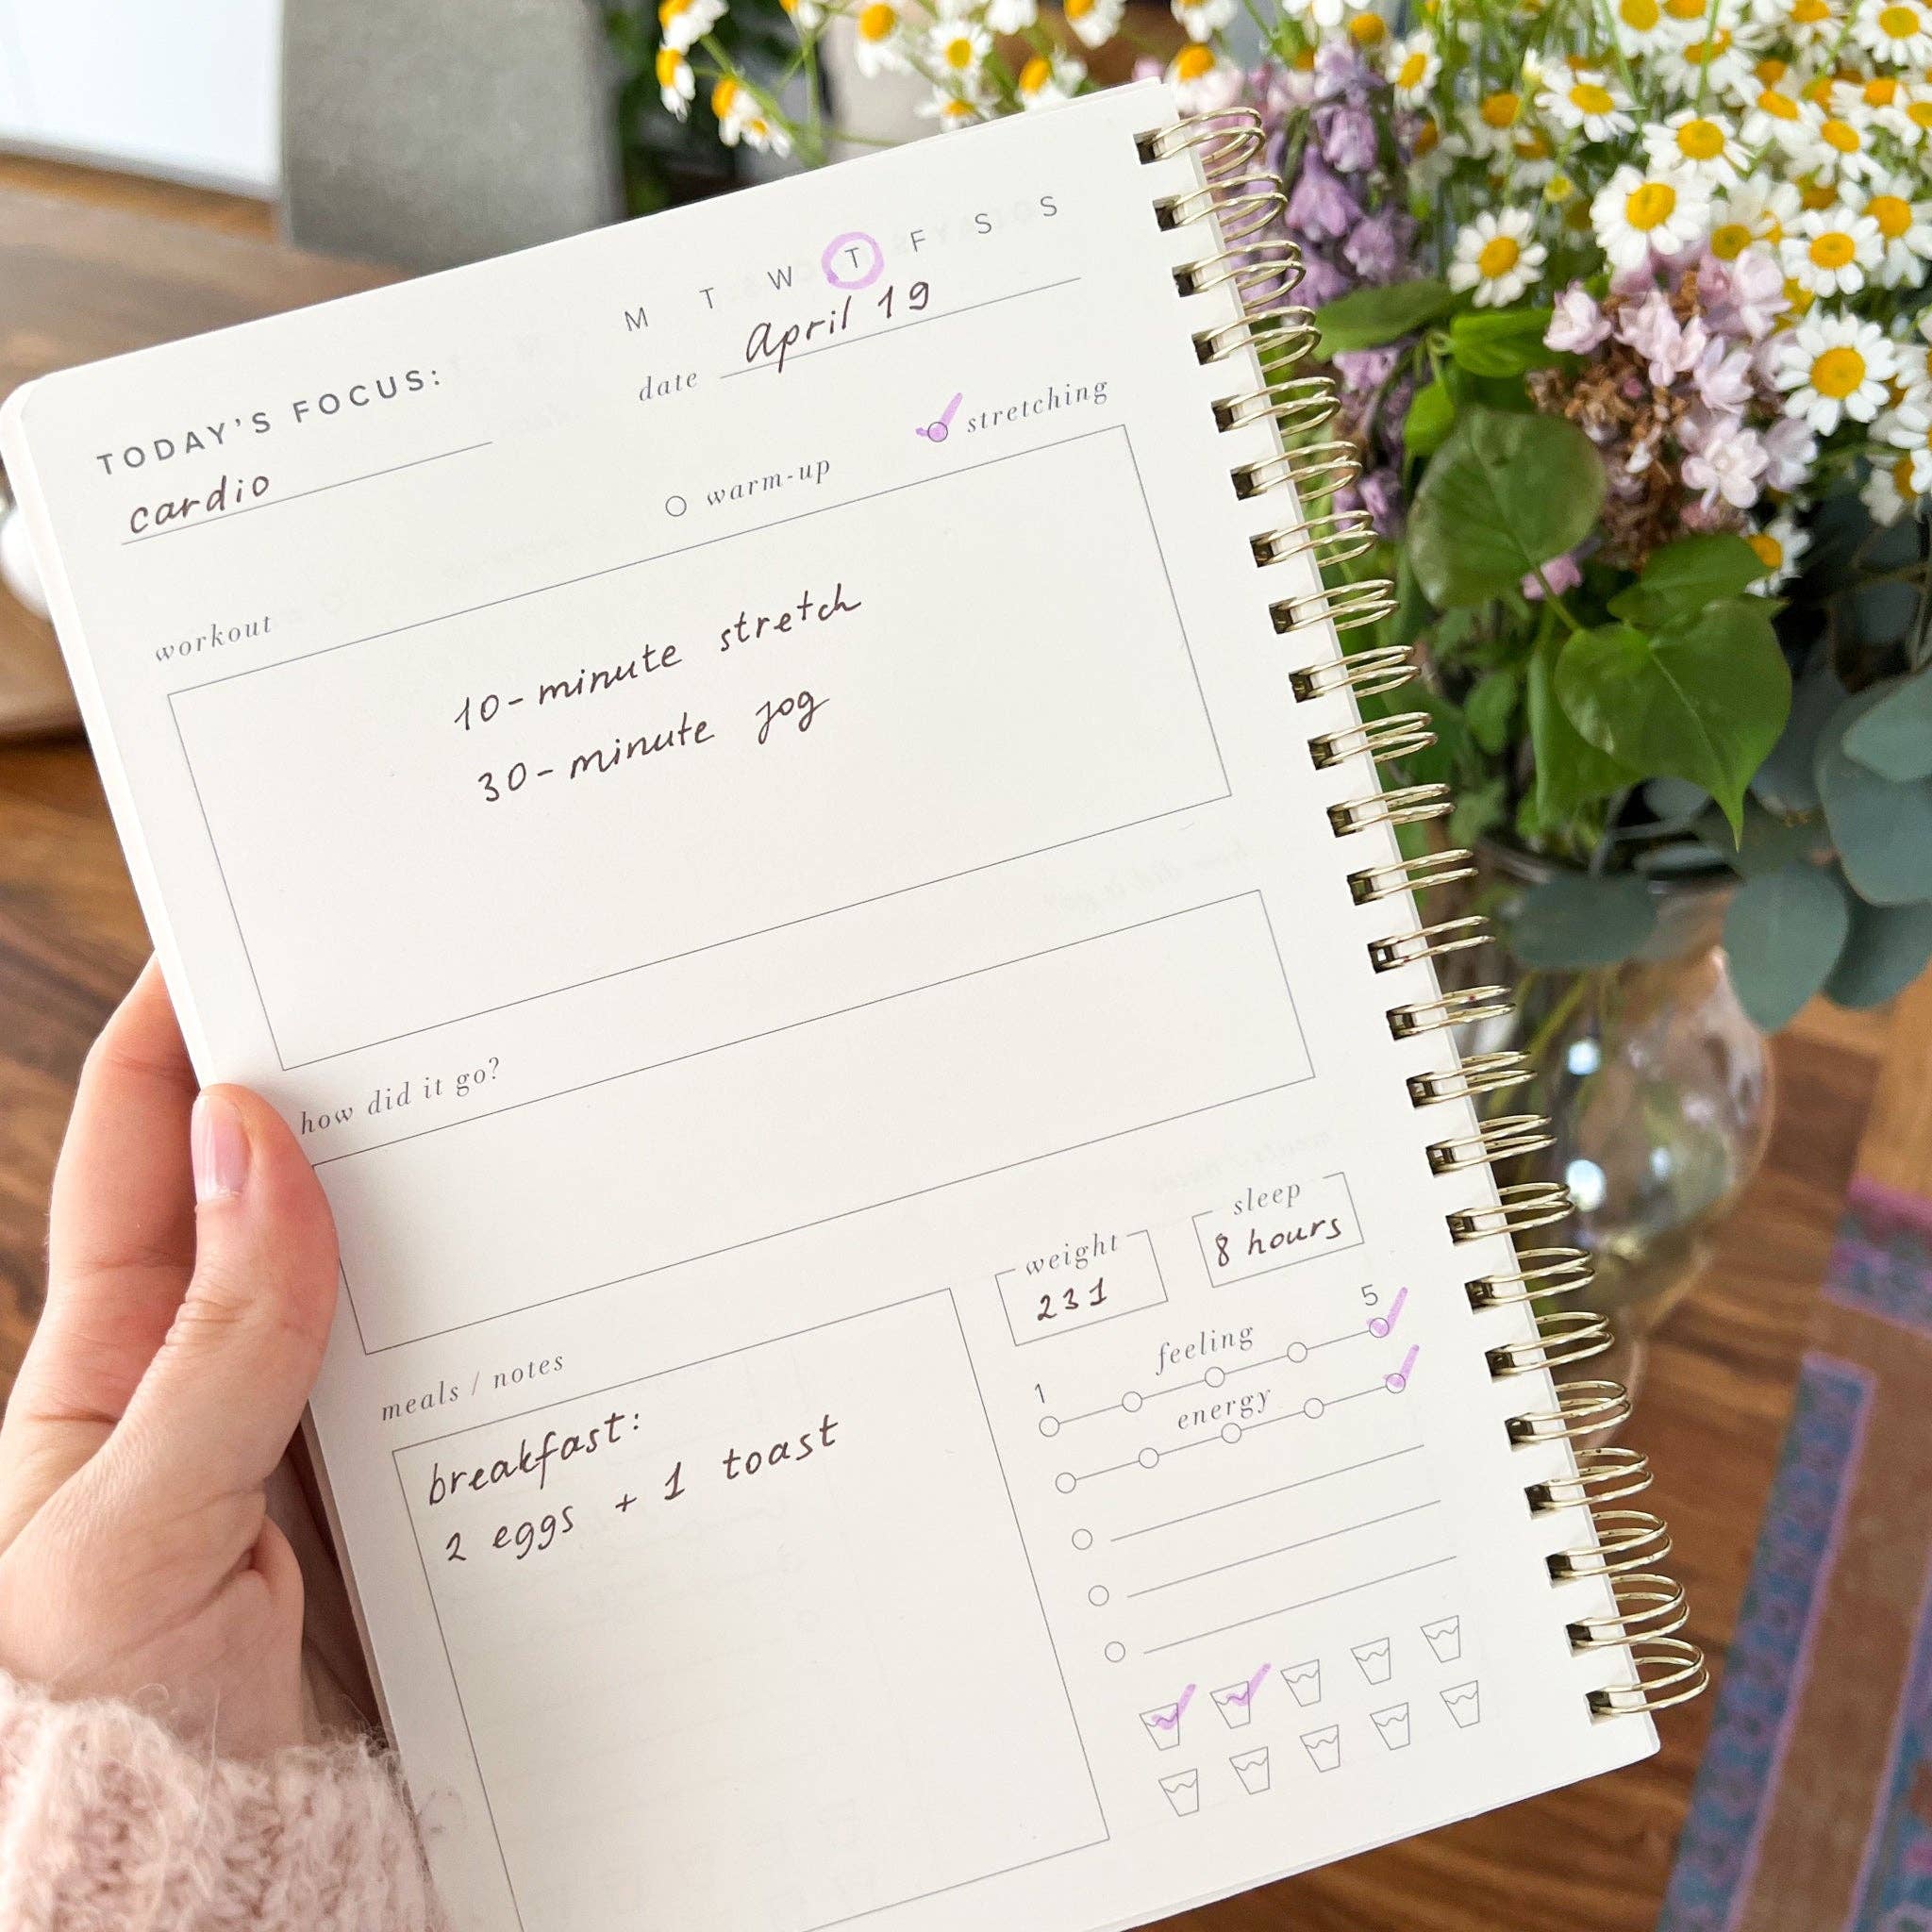 M T W T F S S
TODAY'S FOCUS:
cardio
date april 19
warm-up
stretching
workout
10-minute stretch
30-minute jog
how did it go?
weight
231
sleep
8 hours
meals / notes
breakfast:
2 eggs + 1 toast
feeling
1 5
energy